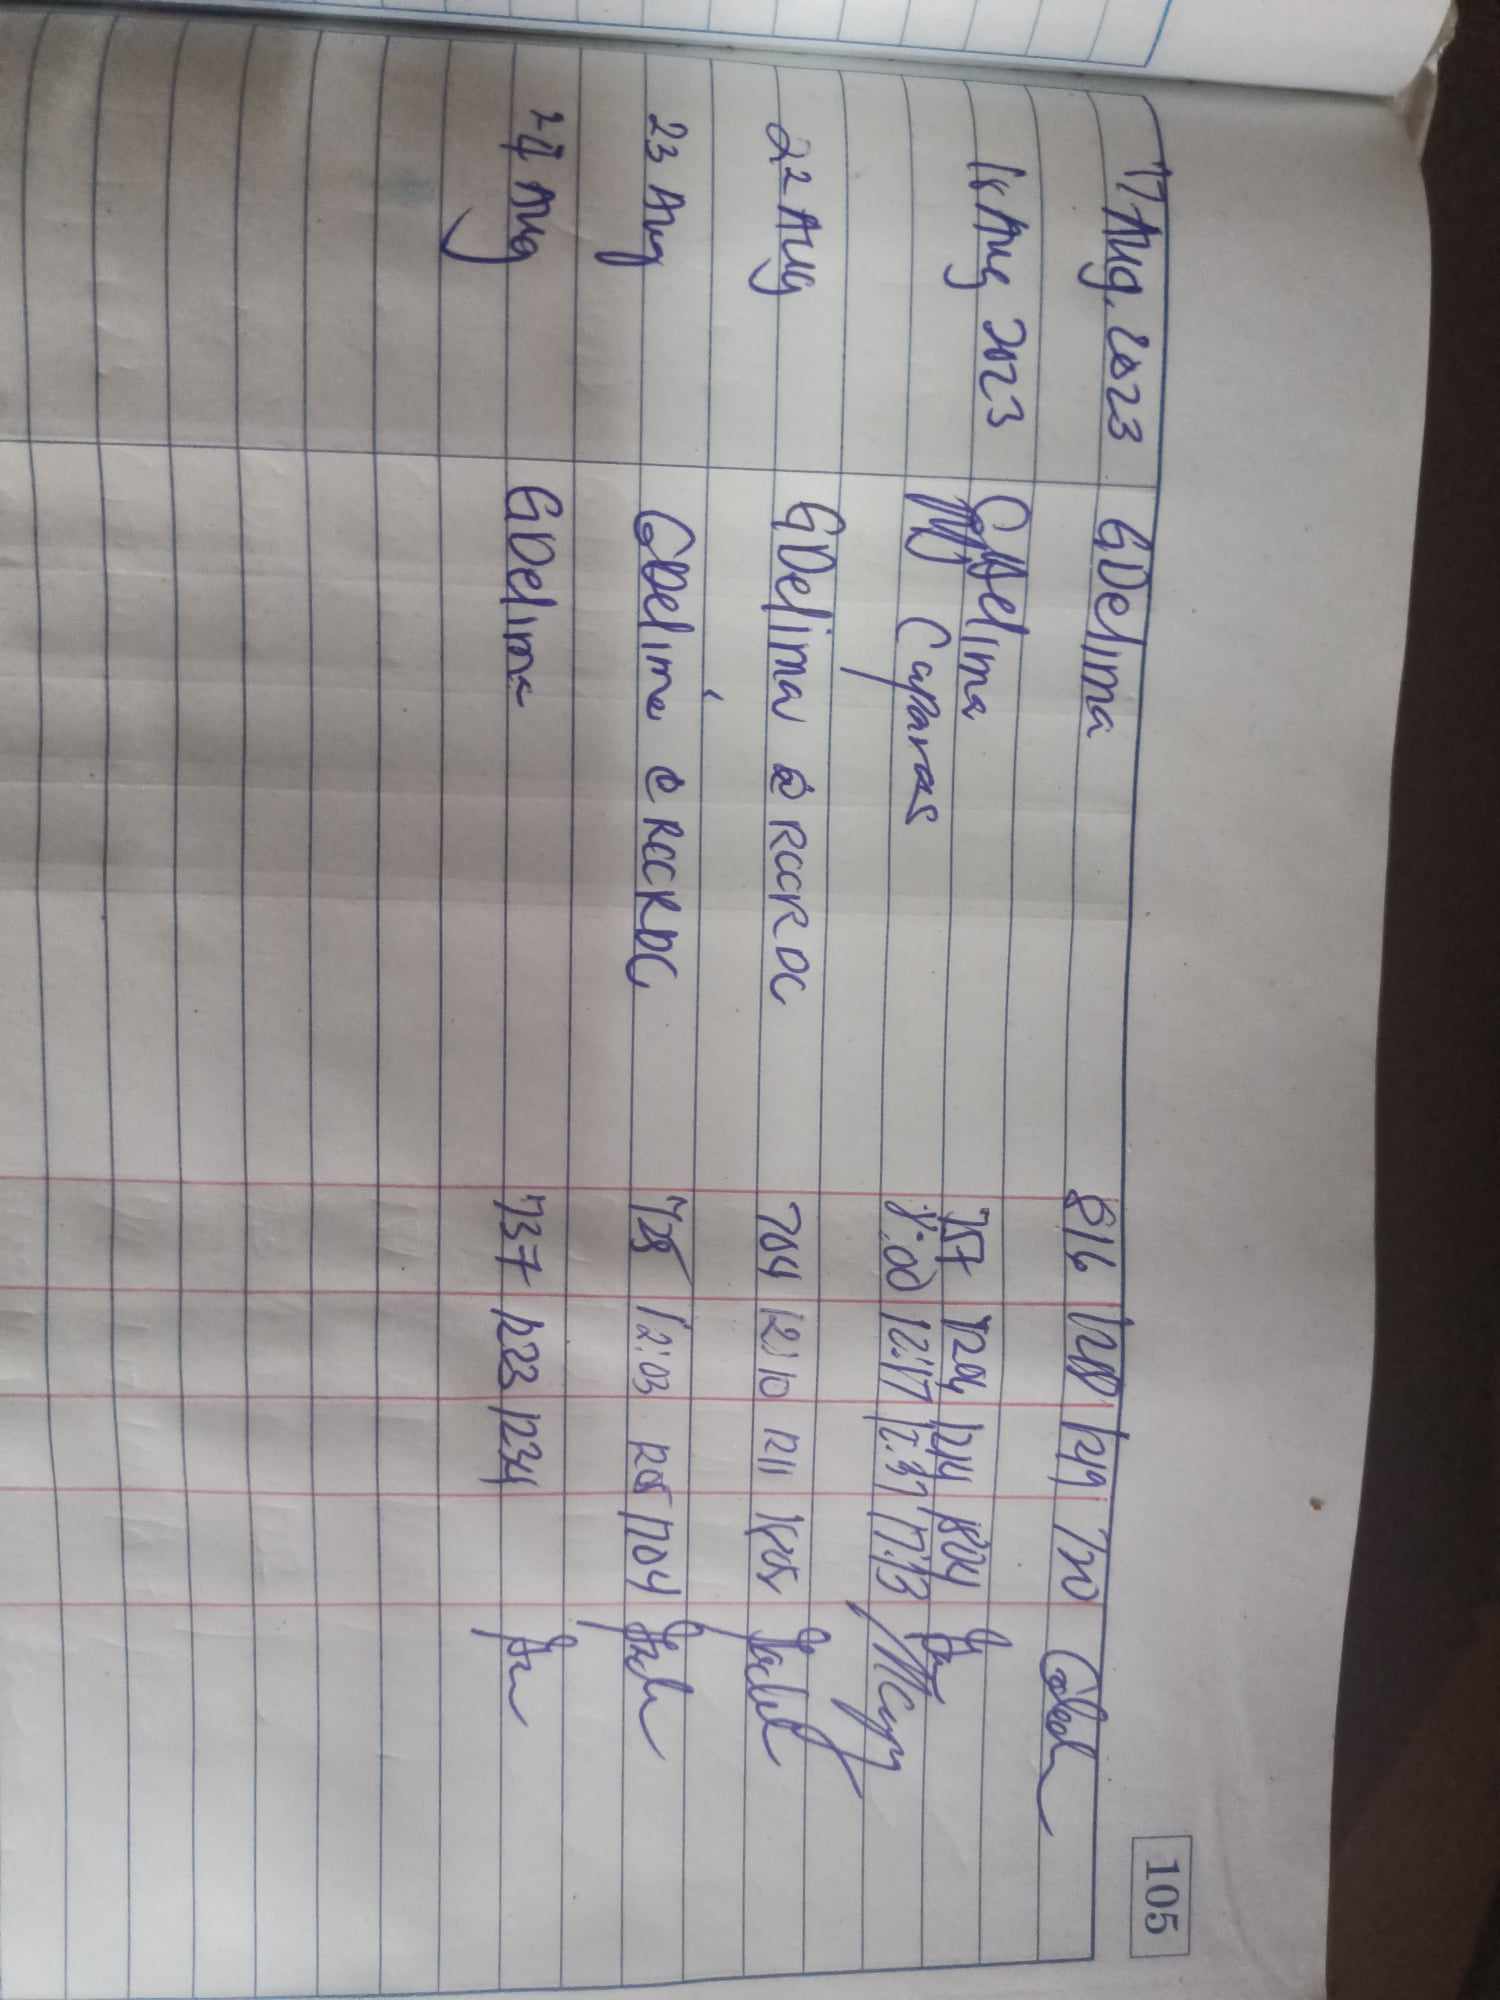 105
17 Aug. 2023 GDelima 816 1208 1219 720
18 Aug 2023 GDelima 757 1204 1214 1804
Caparas 8:00 12:17 12:37 17:13
22 Aug GDelima @ RCCRDC 704 12:10 1211 1805
23 Aug GDelima @ RCCRDC 728 12:03 1205 1704
24 Aug GDelima 737 1233 1234